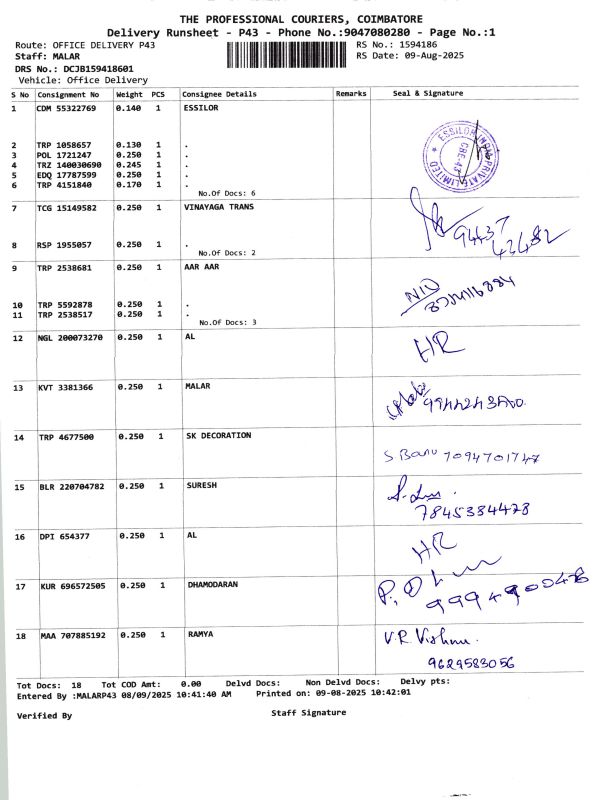 THE PROFESSIONAL COURIERS, COIMBATORE
Delivery Runsheet - P43 - Phone No.:9047080280 - Page No.:1
Route: OFFICE DELIVERY P43 RS No.: 1594186
Staff: MALAR RS Date: 09-Aug-2025
DRS No.: DCJB159418601
Vehicle: Office Delivery
S No Consignment No Weight PCS Consignee Details Remarks Seal & Signature
1 CDM 55322769 0.140 1 ESSILOR
ESSILOR INDIA PRIVATE LIMITED ★ CBE-43
2 TRP 1058657 0.130 1 .
3 POL 1721247 0.250 1 .
4 TRZ 140030690 0.245 1 .
5 EDQ 17787599 0.250 1 .
6 TRP 4151840 0.170 1 .
No.Of Docs: 6
7 TCG 15149582 0.250 1 VINAYAGA TRANS
94437
42482
8 RSP 1955057 0.250 1 .
No.Of Docs: 2
9 TRP 2538681 0.250 1 AAR AAR
10 TRP 5592878 0.250 1 .
11 TRP 2538517 0.250 1 .
No.Of Docs: 3
12 NGL 200073270 0.250 1 AL
HR
13 KVT 3381366 0.250 1 MALAR
14 TRP 4677500 0.250 1 SK DECORATION
S. Banu 7094701747
15 BLR 220704782 0.250 1 SURESH
7845384428
16 DPI 654377 0.250 1 AL
HR
17 KUR 696572505 0.250 1 DHAMODARAN
9994990048
18 MAA 707885192 0.250 1 RAMYA
V.R Vishnu.
9629583056
Tot Docs: 18 Tot COD Amt: 0.00 Delvd Docs: Non Delvd Docs: Delvy pts:
Entered By :MALARP43 08/09/2025 10:41:40 AM Printed on: 09-08-2025 10:42:01
Verified By Staff Signature